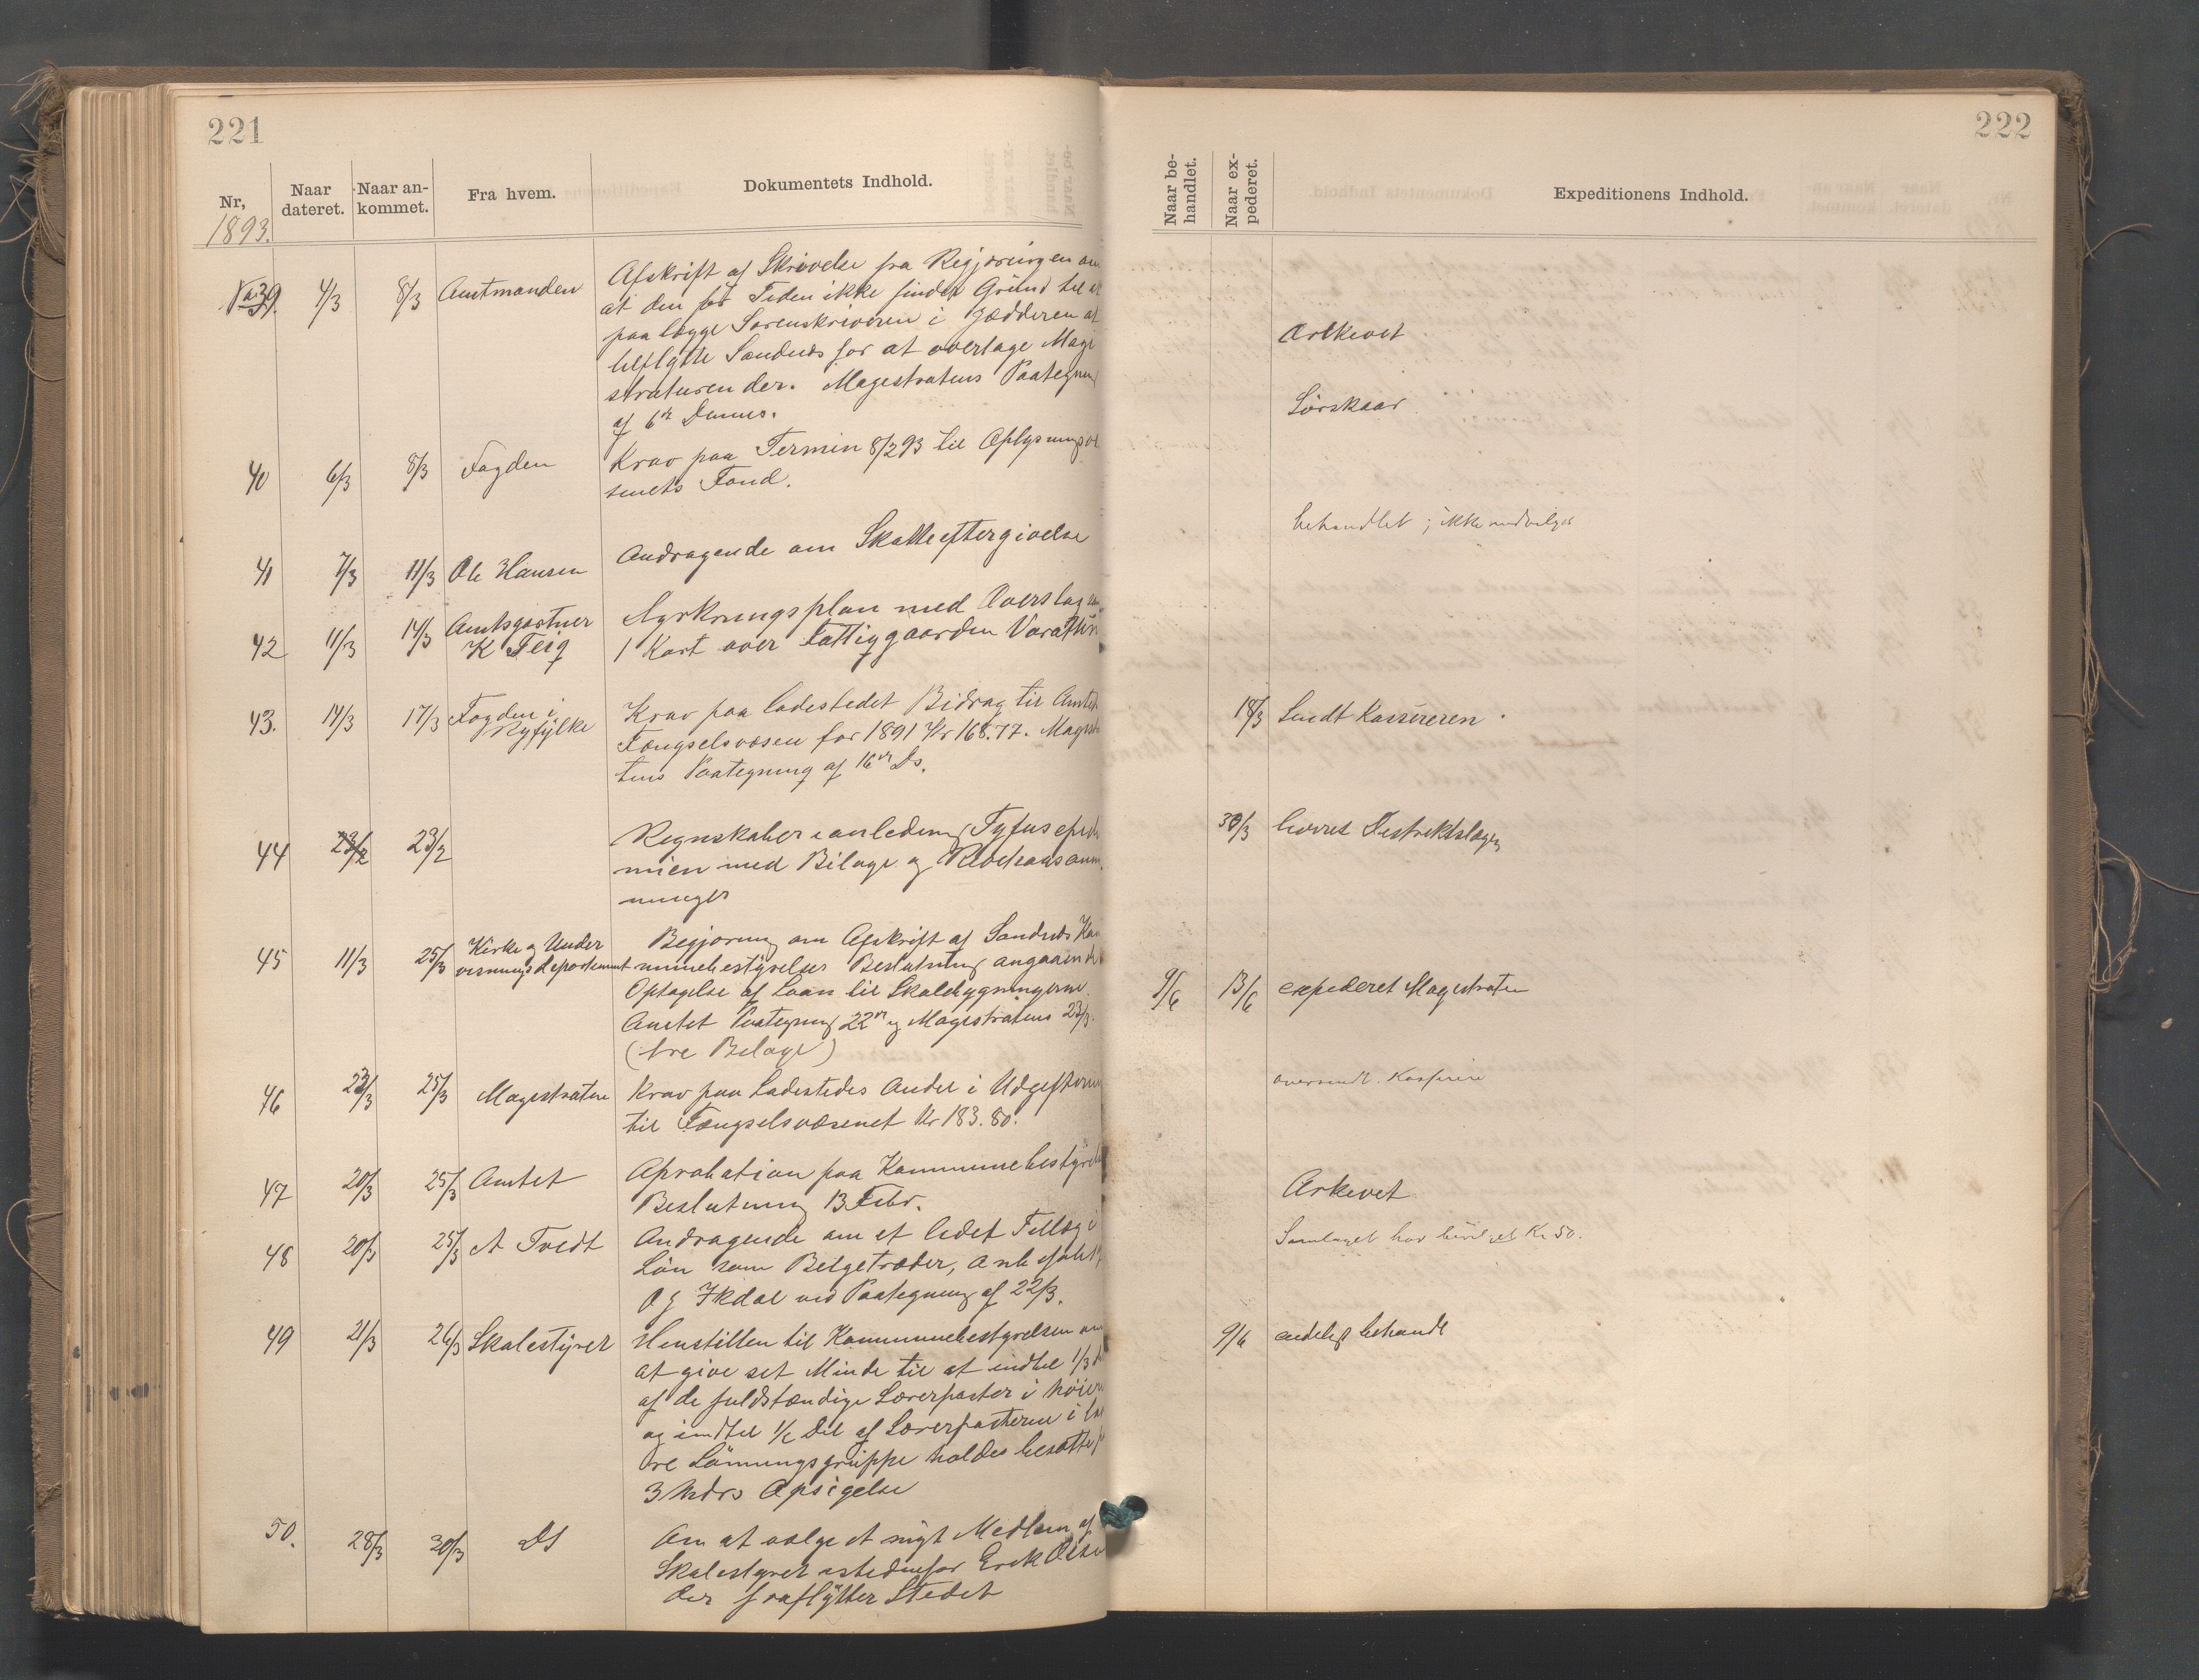 221
Nr,
Naar dateret.
Naar ankommet.
Fra hvem.
Dokumentets Indhold.
1893.
No 39. 4/3 8/3 Amtmanden Afskrift af Skrivelse fra Regjeringen om
at den for Tiden ikke finder Grund til at
paalægge Sorenskriveren i Jædderen at
tilflytte Sandnes for at overtage Magi
straturen der. Magistratens Paategning
af 6te Dennes.
40 6/3 8/3 Fogden Krav paa Termin 8/2 93 til Oplysningsvæ
senets Fond.
41 7/3 11/3 Ole Hansen Andragende om Skatteeftergivelse
42 11/3 14/3 Amtsgartner Dyrkningsplan med Overslag
K Teig 1 Kart over Fattiggaarden Vara
43. 14/3 17/3 Fogden i Krav paa ladestedet Bidrag til Amtets
Ryfylke Fængselsvæsen for 1891 Kr 168.77. Magistra
tens Paategning af 16de Ds.
44 23/2 23/2 Regnskaber i anledning Tyfusepide
mien med Bilage og
ninger
45 11/3 25/3 Kirke og Under Begjæring om Afskrift af Sandnes Kom
visningsdepartement munebestyrelses Beslutning angaaende
Optagelse af Laan til Skolebygningerne
Amtet Paategning 22de og Magistratens 23/3.
(tre Bilage)
46 23/3 25/3 Magistraten Krav paa Ladestedes Andel i Udgifterne
til Fængselsvæsenet Kr 183.80.
47 20/3 25/3 Amtet Aprobation paa Kommunebestyrels
Beslutning 13 Febr.
48 20/3 25/3 A Tvedt Andragende om et lidet Tillæg i
Løn som Belgetræder, Anbefalet
O G Ihdal ved Paategning af 22/3.
49 21/3 26/3 Skolestyret Henstillen til Kommunebestyrelsen om
at give set Minde til at indtil 1/3 d
af de fuldstændige Lærerposter i høier
og indtil 1/2 Del af Lærerposterne i lav
ere Lønningsgruppe holdes besatte p
3 Mdrs Opsigelse
50. 28/3 30/3 Ds Om at vælge et nyt Medlem af
Skolestyret istedenfor Erik Olse
der fraflytter Stedet
222
Naar behandlet.
Naar expederet.
Expeditionens Indhold.
Arkivet
Sörskaar
behandlet ; ikke indvilget
18/3 Sendt Kasséreren.
30/3 leveret Distriktslægen
9/6 13/6 expederet Magistraten
oversendt. Kasserere
Arkivet
Samlaget har bevilget Kr 50.
9/6 endeligt behandl